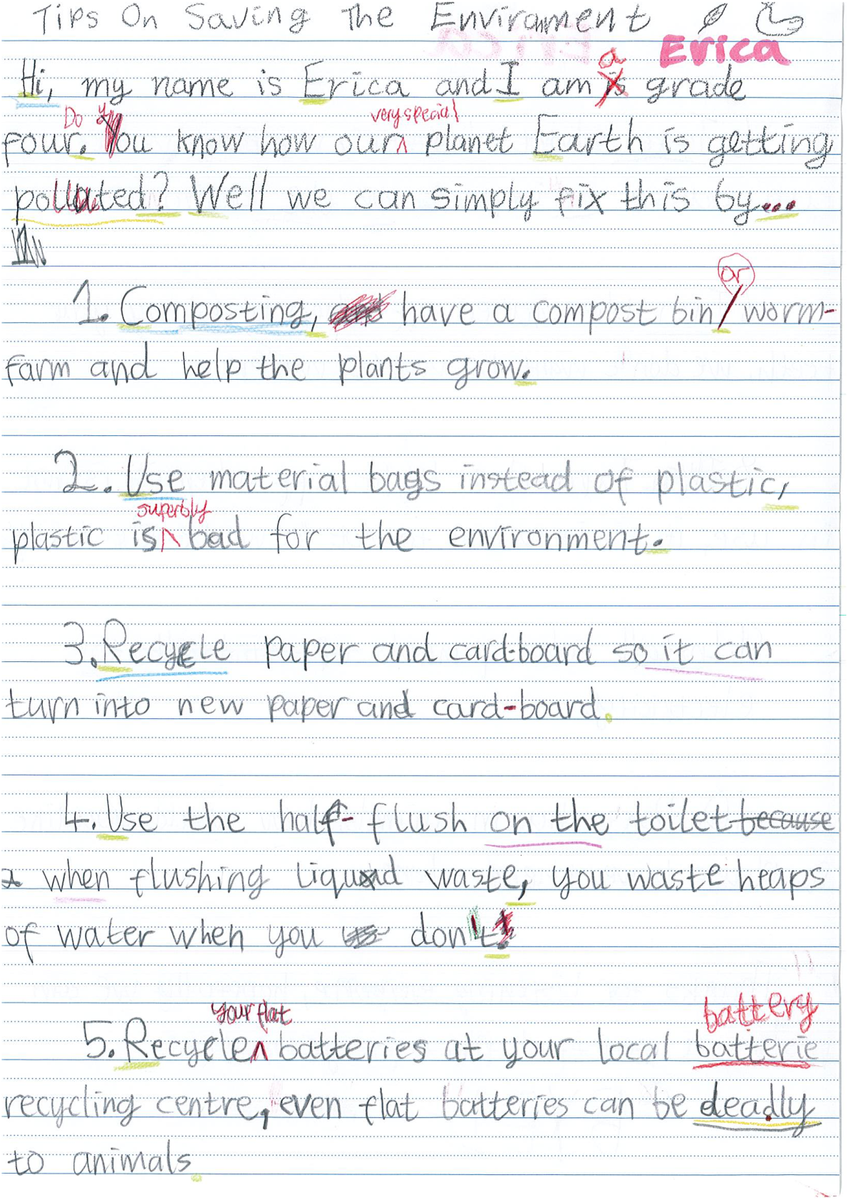 Tips On Saving The Enviroment
Erica
Hi, my name is Erica and I am a grade
four. Do you know how our very special planet Earth is getting
polluted? Well we can simply fix this by...
1. Composting, have a compost bin / or worm-
farm and help the plants grow.
2. Use material bags instead of plastic,
plastic is superbly bad for the environment.
3. Recycle paper and card-board so it can
turn into new paper and card-board.
4. Use the half-flush on the toilet because
when flushing liquid waste, you waste heaps
of water when you don't!
5. Recycle your flat batteries at your local batterie battery
recycling centre, even flat batteries can be deadly
to animals.